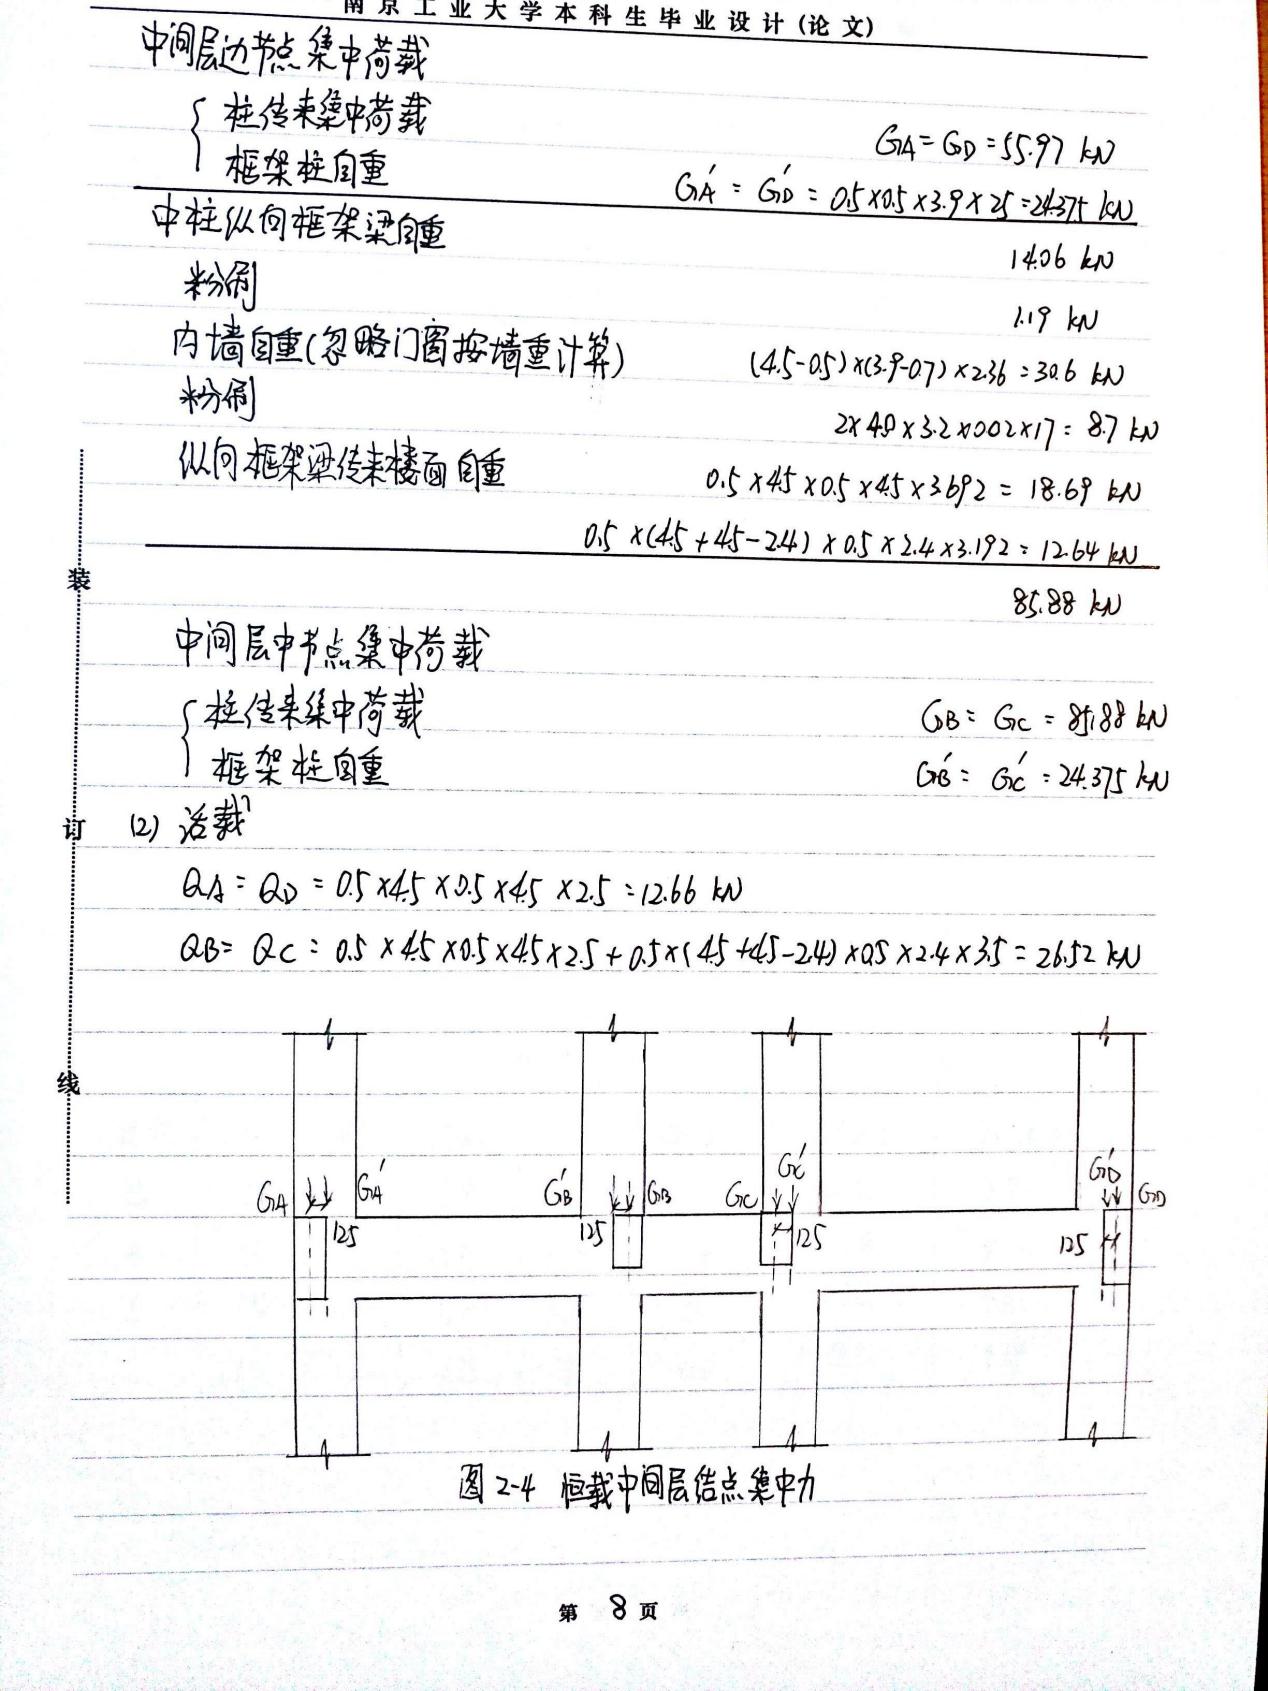 南京工业大学本科生毕业设计(论文)
中间层边节点集中荷载
柱传来集中荷载 GA=GD=55.97 kN
框架柱自重 GA'=GD'=0.5×0.5×3.9×25=24.375 kN
中柱纵向框架梁自重 14.06 kN
粉刷 1.19 kN
内墙自重(忽略门窗按墙重计算) (4.5-0.5)×(3.9-0.7)×2.36=30.6 kN
粉刷 2×4.0×3.2×0.02×17=8.7 kN
纵向框架梁传来楼面自重 0.5×4.5×0.5×4.5×3.692=18.69 kN
0.5×(4.5+4.5-2.4)×0.5×2.4×3.192=12.64 kN
85.88 kN
中间层中节点集中荷载
柱传来集中荷载 GB=GC=85.88 kN
框架柱自重 GB'=GC'=24.375 kN
(2) 活载
QA=QD=0.5×4.5×0.5×4.5×2.5=12.66 kN
QB=QC=0.5×4.5×0.5×4.5×2.5+0.5×(4.5+4.5-2.4)×0.5×2.4×3.5=26.52 kN
GA GA' GB' GB GC GC' GD' GD
125 125 125 125
图2-4 恒载中间层结点集中力
第 8 页
装
订
线